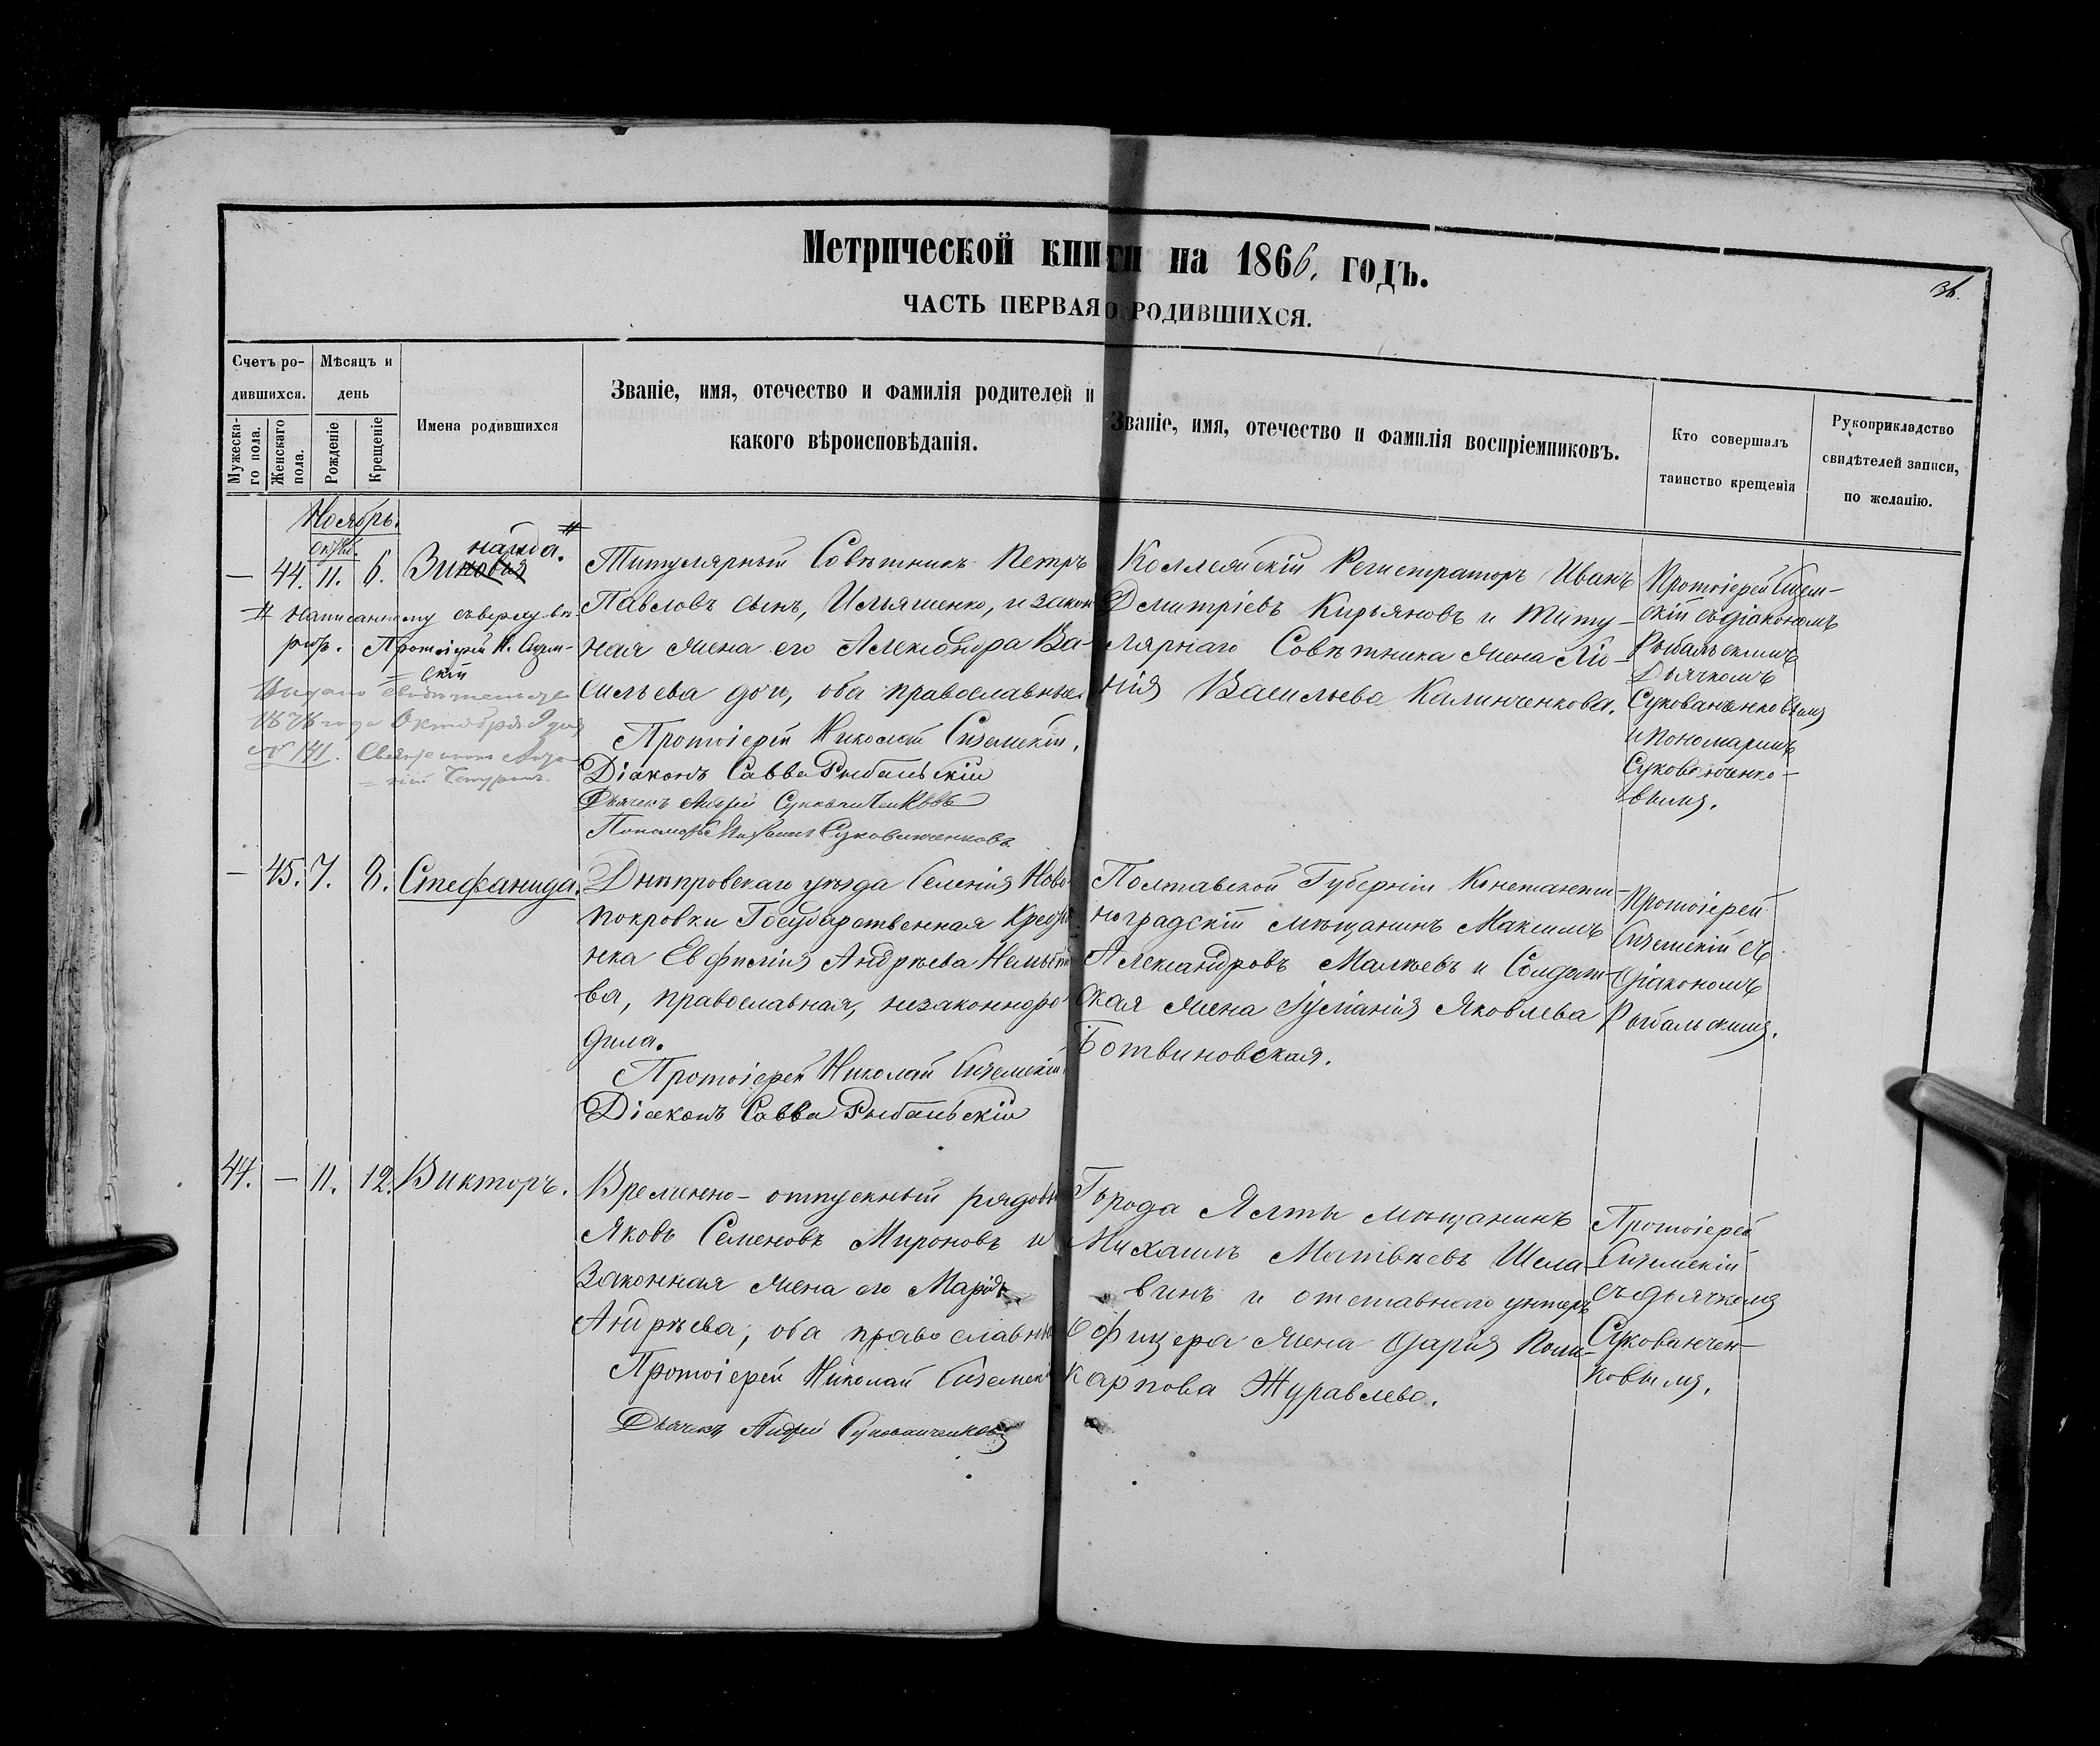 Метрической книги на 1866. годъ.
ЧАСТЬ ПЕРВАЯ О РОДИВШИХСЯ.
36.
Счетъ ро-
дившихся.
Мужеска-
го пола.
Женскаго
пола.
Мѣсяцъ и
день
Рожденіе
Крещеніе
Имена родившихся
Званіе, имя, отечество и фамилія родителей и
какого вѣроисповѣданія.
Званіе, имя, отечество и фамилія воспріемниковъ.
Кто совершалъ
таинство крещенія
Рукоприкладство
свидѣтелей записи,
по желанію.
Ноябрь.
Октяб.
— 44. 11. 6. Зиновія
наида. #
# Написанному сверху вѣ-
рить. Протоіерей Н. Сизем-
скій
Выдано свидѣтельство
1878 года Октября 9 дня
№ 141. Священникъ
Титулярный Совѣтникъ Петръ
Павловъ сынъ, Ильяшенко, и закон
ная жена его Александра Ва-
сильева дочь, оба православные
Протоіерей Николай Сиземскій.
Діаконъ Савва Рыбальскій
Дьячекъ Андрей Сукованченковъ
Пономарь Михаилъ Сукованченковъ.
Коллежскій Регистраторъ Иванъ
Дмитріевъ Кирьяновъ и Титу-
лярнаго Совѣтника жена
Васильева Калинченкова.
Протоіерей Сизем-
скій съ діакономъ
Рыбальскимъ
Дьячкомъ
Сукованченковымъ
и Пономаремъ
Сукованченко-
вымъ.
— 45. 7. 8. Стефанида.
Днѣпровскаго уѣзда Селенія Ново-
покровки Государственная Крестья
нка Евфимія Андреева
ва, православная, незаконноро
дила.
Протоіерей Николай Сиземскій
Діаконъ Савва Рыбальскій
Полтавской Губерніи Константи-
ноградскій мѣщанинъ Максимъ
Александровъ Малѣевъ и Солдат-
ская жена Іуліанія Яковлева
Ботвиновская.
Протоіерей
Сиземскій съ
діакономъ
Рыбальскимъ.
44. — 11. 12. Викторъ.
Временно-отпускный рядовый
Яковъ Семеновъ Мироновъ и
Законная жена его Марія
Андреева, оба православные
Протоіерей Николай Сиземскі
Дьячекъ Андрей Сукованченковъ
Города Ялты мѣщанинъ
Михаилъ Матвѣевъ Шела-
винъ и отставнаго унтеръ
офицера жена Дарія Поли-
карпова Журавлева.
Протоіерей
Сиземскій
съ дьячкомъ
Сукованчен-
ковымъ.